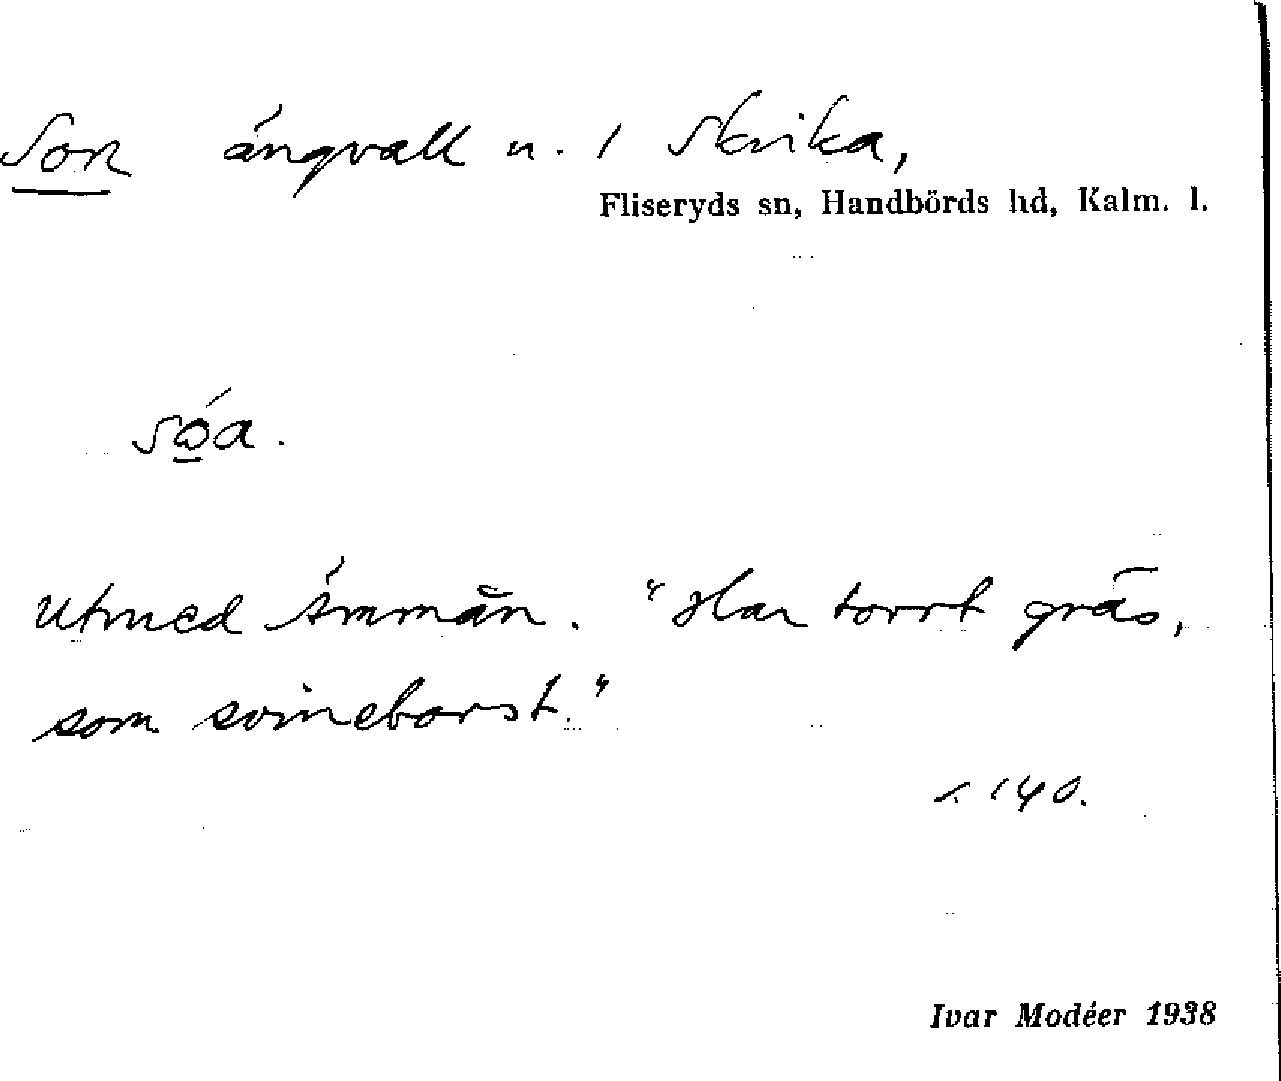 Son ängvall u. 1 Skrika,
Fliseryds sn, Handbörds hd, Kalm. l.
utmed Ämmån. "Har torrt gräs,
som svineborst."
s. 140.
Ivar Modéer 1938